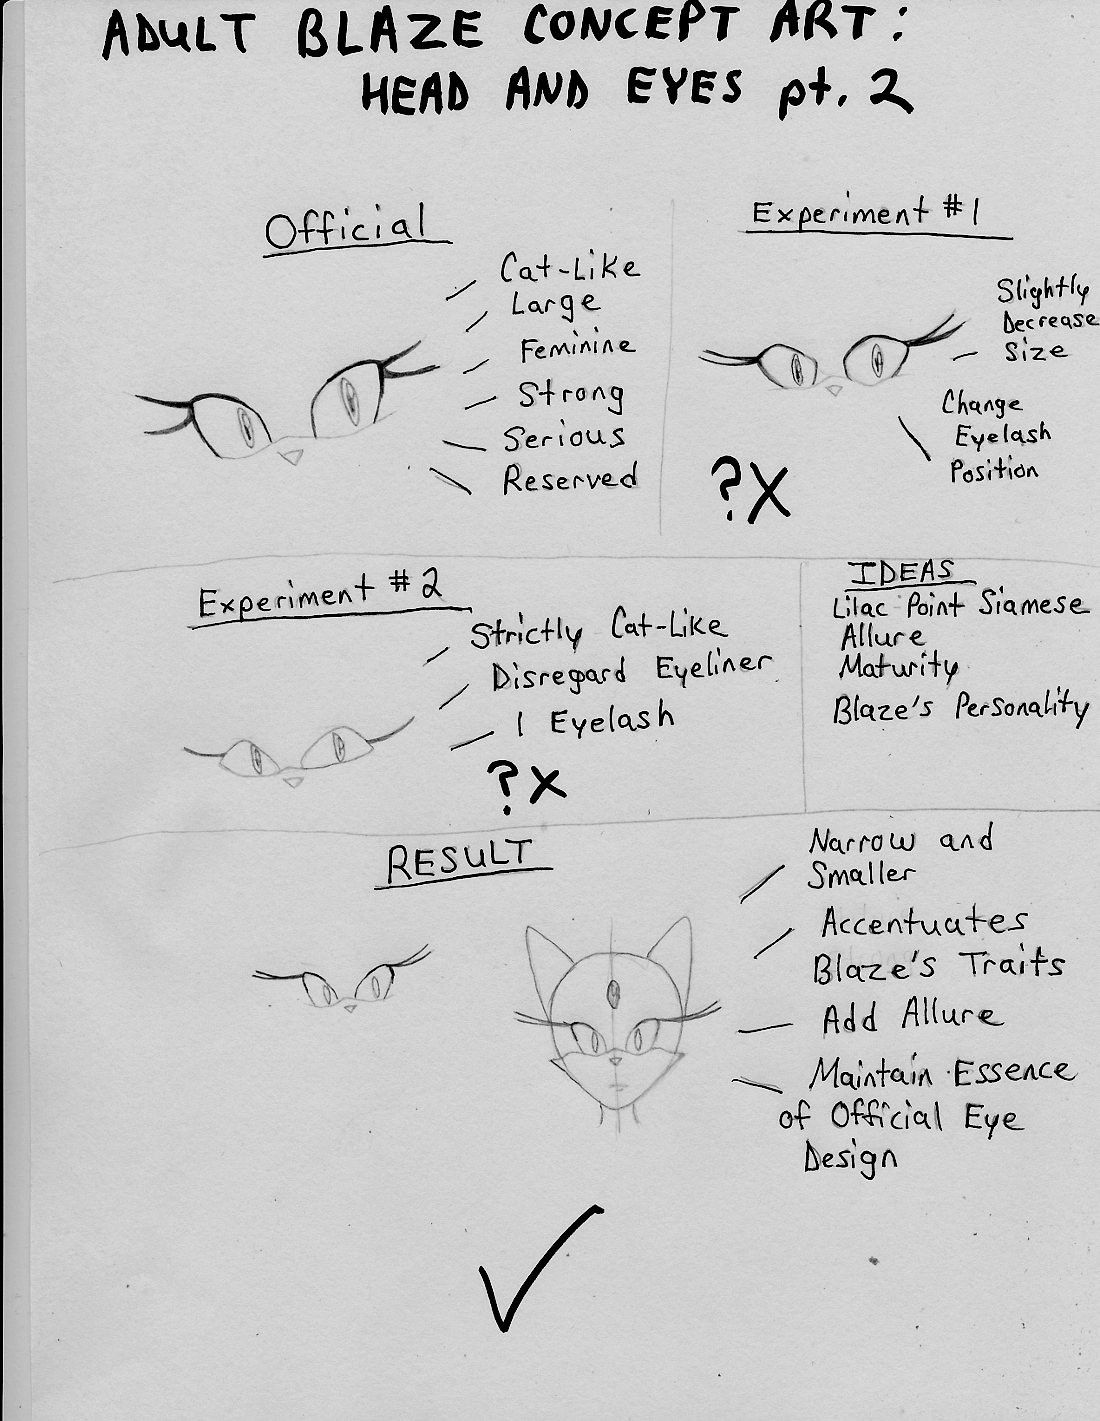 ADULT BLAZE CONCEPT ART:
HEAD AND EYES pt. 2
Official
Cat-Like
Large
Feminine
Strong
Serious
Reserved
Experiment #1
Slightly
Decrease
Size
Change
Eyelash
Position
?X
Experiment #2
Strictly Cat-Like
Disregard Eyeliner
1 Eyelash
?X
IDEAS
Lilac Point Siamese
Allure
Maturity
Blaze's Personality
RESULT
Narrow and
Smaller
Accentuates
Blaze's Traits
Add Allure
Maintain Essence
of Official Eye
Design